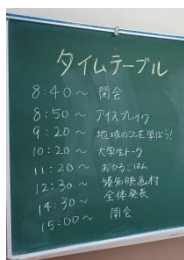 タイムテーブル
8:40〜 開会
8:50〜 アイスブレイク
9:20〜 地域の工芸学ぼう!
10:20〜 大学生トーク
11:20〜 おひるごはん
12:30〜 映画村
14:30〜 全体発表
15:00〜 閉会